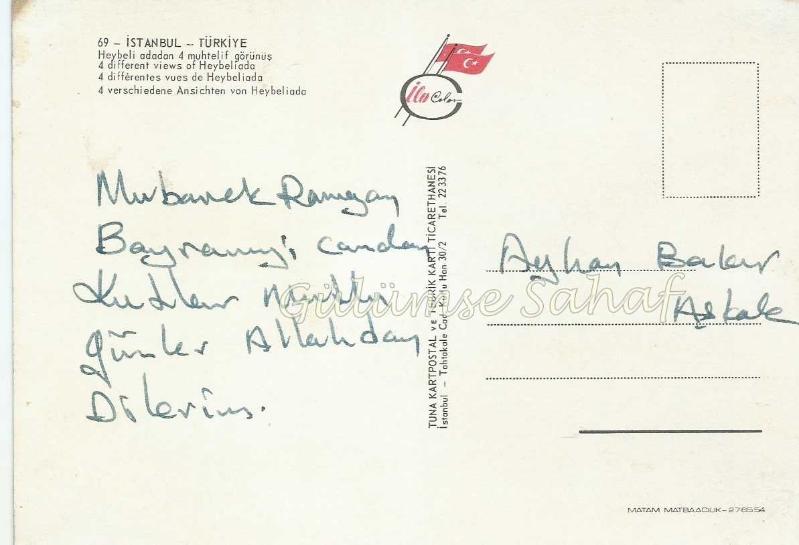 69 - İSTANBUL - TÜRKİYE
Heybeli adadan 4 muhtelif görünüş
4 different views of Heybeliada
4 différentes vues de Heybeliada
4 verschiedene Ansichten von Heybeliada
Color
Mubarek Ramazan
Bayramınızı candan
Kutlar mutlu
günler Allahdan
Dilerim.
TUNA KARTPOSTAL ve TEBRİK KARTI TİCARETHANESİ
İstanbul - Tahtakale Cad. Kutlu Han 30/2 Tel. 22 33 76
Ayhan Bakır
Aşkale
Gülümse Sahaf
MATAM MATBAACILIK-276554